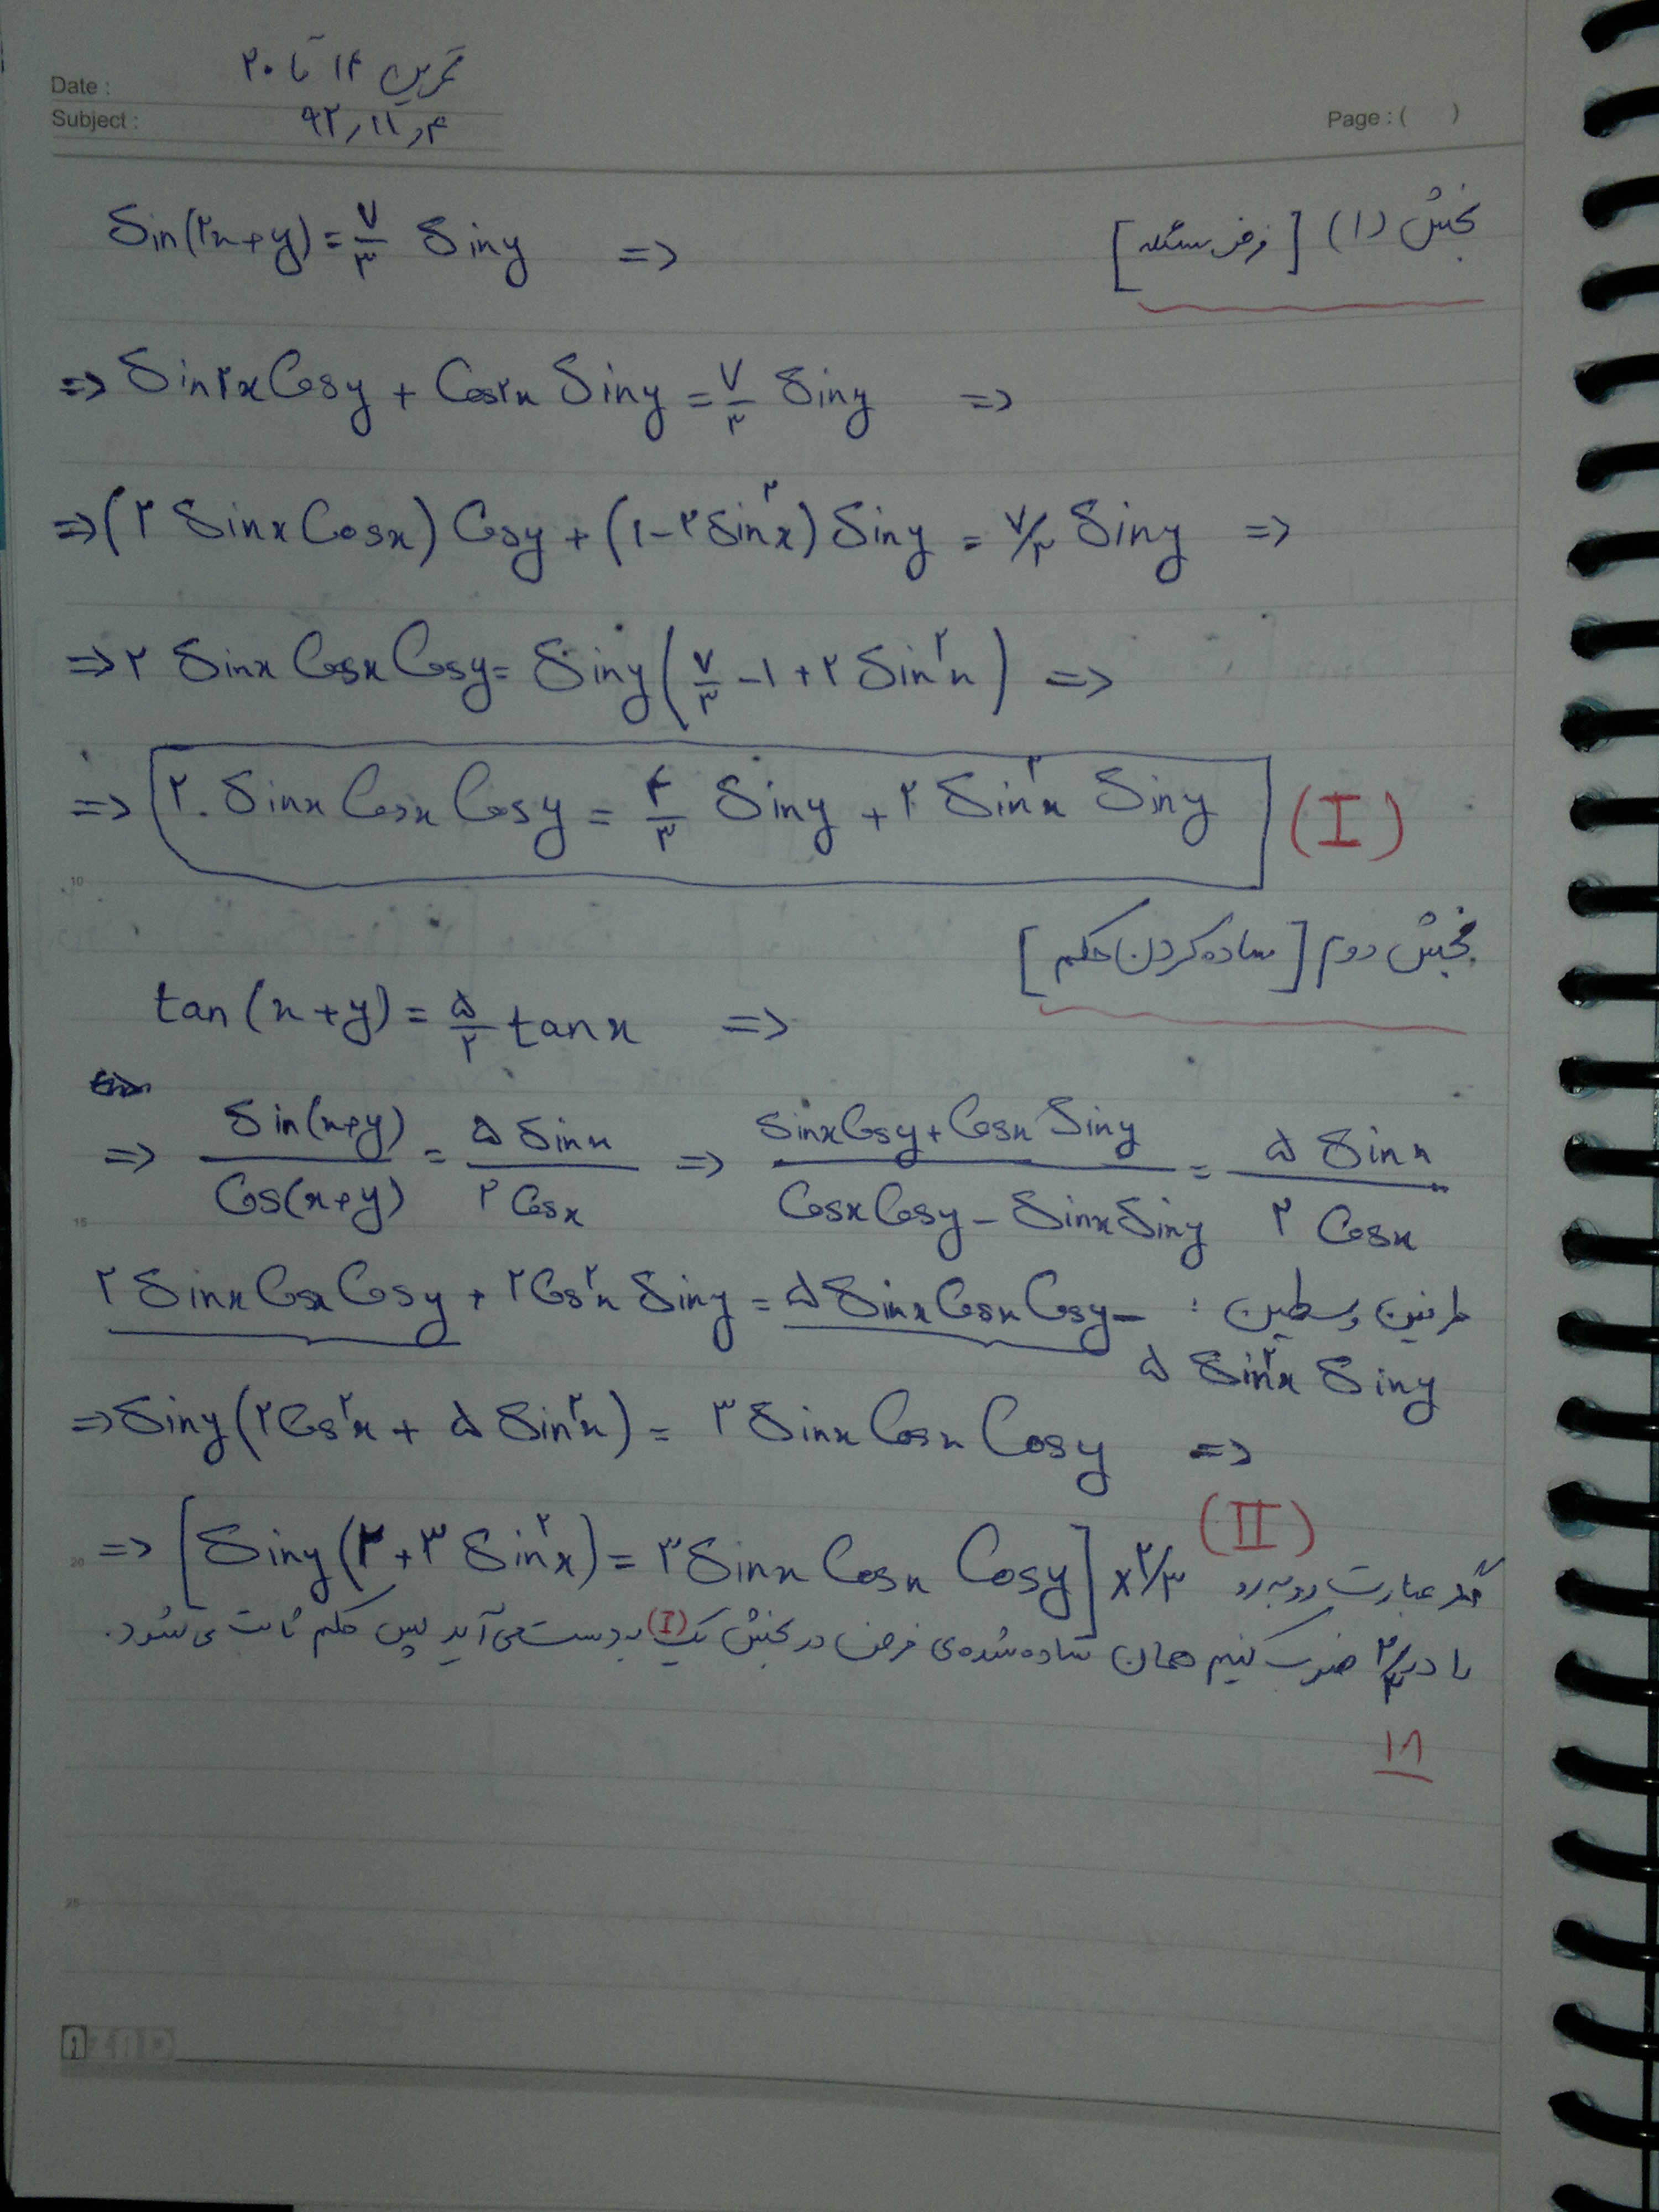 Date :
تمرین ۱۴ تا ۲۰
Subject :
۹۲,۱۱,۴
Page : ( )
بخش (۱) [فرض مسئله]
Sin(۲x+y) = ۷/۳ Siny =>
=> Sin۲x Cosy + Cos۲x Siny = ۷/۳ Siny =>
=> (۲ Sinx Cosx) Cosy + (۱-۲Sin²x) Siny = ۷/۳ Siny =>
=> ۲ Sinx Cosx Cosy = Siny (۷/۳ -۱ + ۲ Sin²x) =>
=> ۲ Sinx Cosx Cosy = ۴/۳ Siny + ۲ Sin²x Siny (I)
10
بخش دوم [ساده کردن حکم]
tan(x+y) = ۵/۲ tanx =>
=> Sin(x+y)/Cos(x+y) = ۵ Sinx/۲ Cosx => Sinx Cosy + Cosx Siny/Cosx Cosy - Sinx Siny = ۵ Sinx/۲ Cosx
15
طرفین وسطین : ۲ Sinx Cosx Cosy + ۲Cos²x Siny = ۵ Sinx Cosx Cosy -
۵ Sin²x Siny
=> Siny(۲Cos²x + ۵ Sin²x) = ۳ Sinx Cosx Cosy =>
(II)
20
=> [Siny (۲+۳ Sin²x) = ۳ Sinx Cosx Cosy] ×۲/۳ اگر عبارت روبه‌رو
را در ۲/۳ ضرب کنیم همان ساده شده‌ی فرض در بخش یک (I) به دست می‌آید پس حکم ثابت می‌شود.
۱۸
25
AZAD